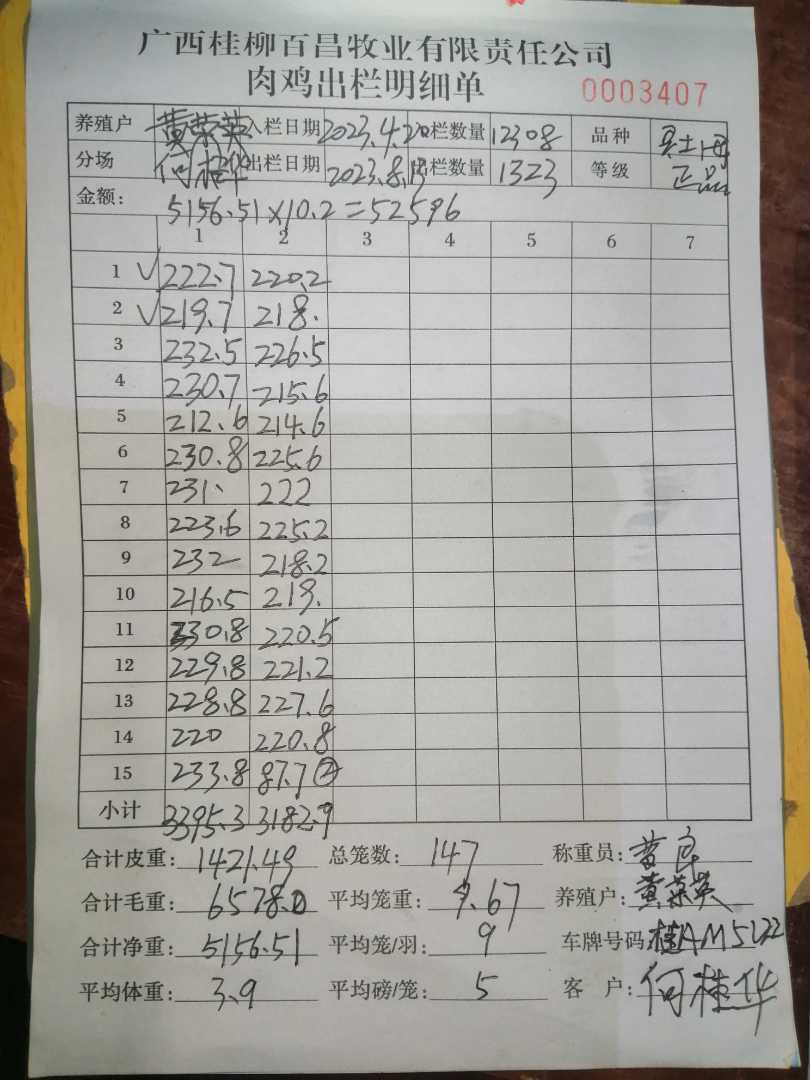 广西桂柳百昌牧业有限责任公司
肉鸡出栏明细单 0003407
养殖户 黄荣英 入栏日期 2023.4.20 栏数量 12308 品种
分场 何桂华 出栏日期 2023.8.13 栏数量 1323 等级 正品
金额: 5156.51×10.2=52596
1 2 3 4 5 6 7
1 √ 222.7 220.2
2 √ 219.7 218.
3 232.5 226.5
4 230.7 215.6
5 212.6 214.6
6 230.8 225.6
7 231. 222
8 223.6 225.2
9 232 218.2
10 216.5 219.
11 230.8 220.5
12 229.8 221.2
13 228.8 227.6
14 220 220.8
15 233.8 87.7 ②
小计 3395.3 3182.9
合计皮重: 1421.49 总笼数: 147 称重员:
合计毛重: 6578.0 平均笼重: 9.67 养殖户: 黄荣英
合计净重: 5156.51 平均笼/羽: 9 车牌号码: 桂AM5122
平均体重: 3.9 平均磅/笼: 5 客 户: 何桂华